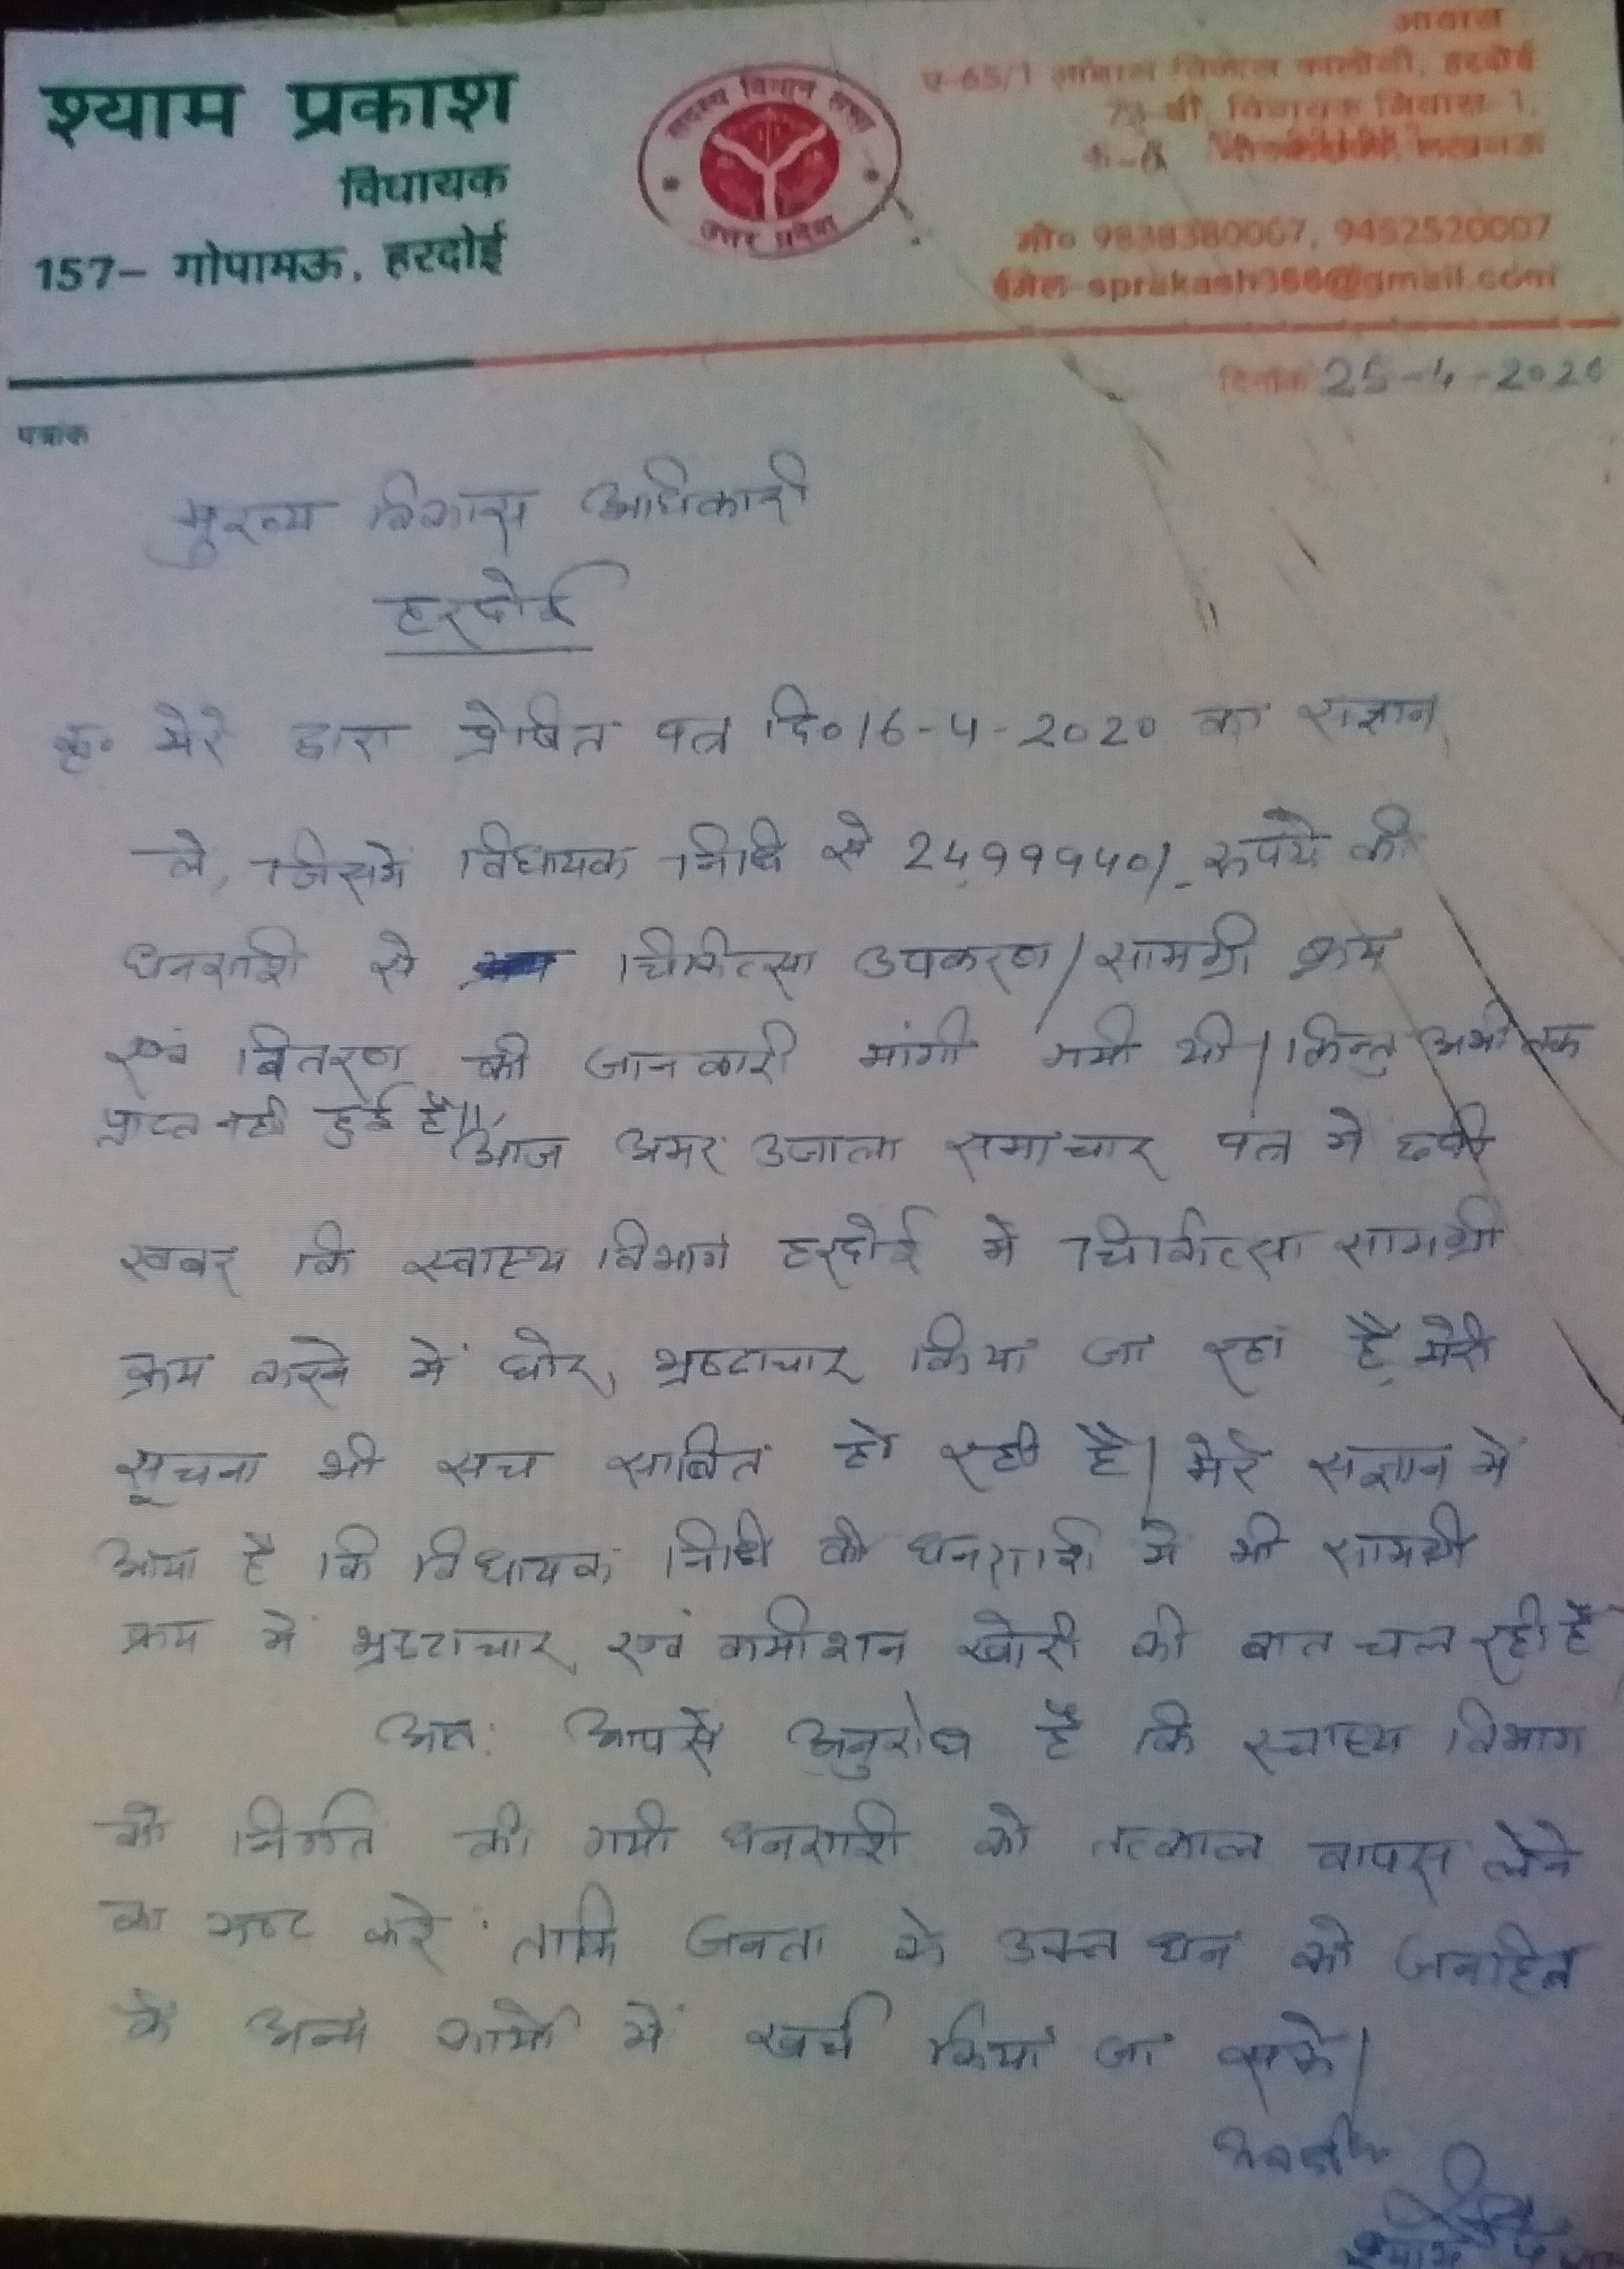 श्याम प्रकाश
विधायक
157- गोपामऊ, हरदोई
सदस्य विधान सभा
उत्तर प्रदेश
आवास
ए-65/1 विकास कालोनी, हरदोई
विधायक निवास-1,
लखनऊ
मो० 9838380007, 9452520007
ईमेल-sprakash386@gmail.com
दिनांक 25-4-2020
पत्रांक
मुख्य विकास अधिकारी
हरदोई
कृ० मेरे द्वारा प्रेषित पत्र दि० 16-4-2020 का संज्ञान
ले, जिसमें विधायक निधि से 2499940/- रुपये की
धनराशि से चिकित्सा उपकरण/सामग्री क्रय
एवं वितरण की जानकारी मांगी गयी थी। किन्तु अभी तक
प्राप्त नही हुई है।
आज अमर उजाला समाचार पत्र में छपी
खबर कि स्वास्थ्य विभाग हरदोई में चिकित्सा सामग्री
क्रय करने में घोर भ्रष्टाचार किया जा रहा है, मेरी
सूचना भी सच साबित हो रही है। मेरे संज्ञान में
आया है कि विधायक निधि की धनराशि में भी सामग्री
क्रय में भ्रष्टाचार एवं कमीशन खोरी की बात चल रही है
अतः आपसे अनुरोध है कि स्वास्थ्य विभाग
को निर्गत की गयी धनराशि को तत्काल वापस लेने
का कष्ट करें ताकि जनता के उक्त धन को जनहित
के अन्य कार्यो में खर्च किया जा सके।
भवदीय